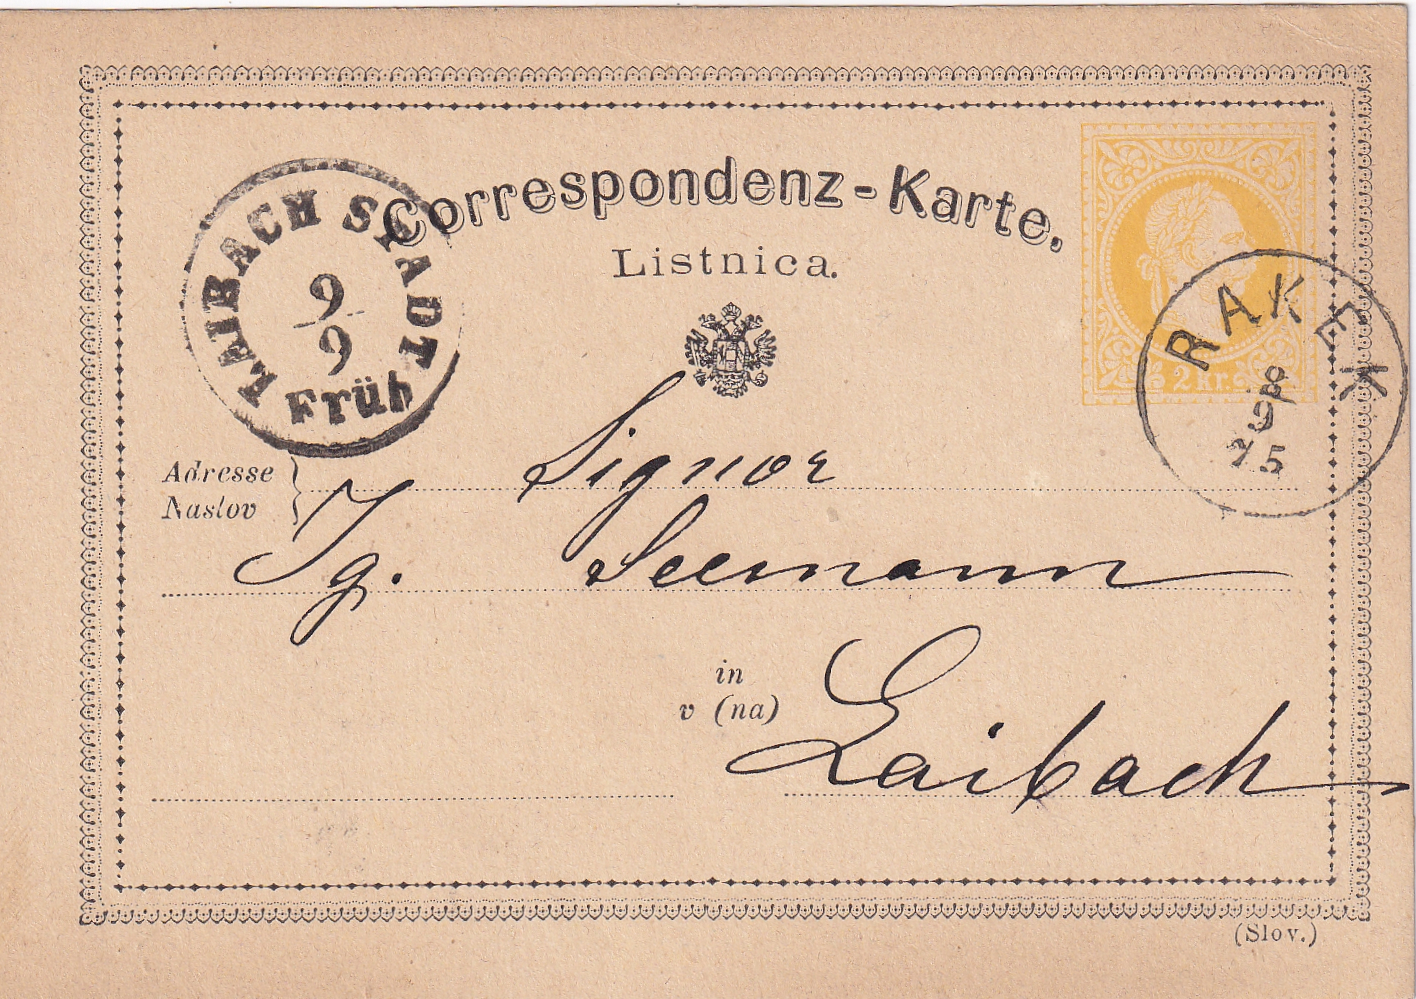 Correspondenz-Karte.
Listnica.
LAIBACH STADT
9
9
Früh
2 kr.
RAKEK
8
9
75
Adresse
Naslov
Signor
Ig. Seemann
in
v (na)
Laibach
(Slov.)